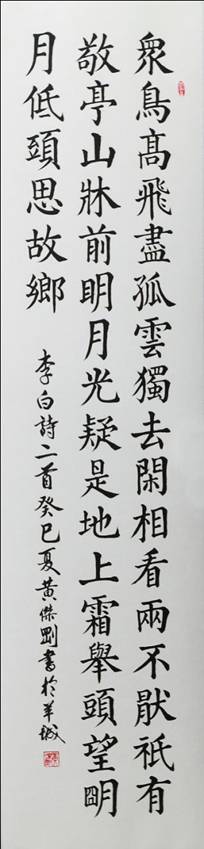 衆鳥髙飛盡孤雲獨去閑相看兩不猒衹有
敬亭山牀前明月光疑是地上霜舉頭望朙
月低頭思故鄉
李白詩二首癸巳夏黄傑剛書於羊城